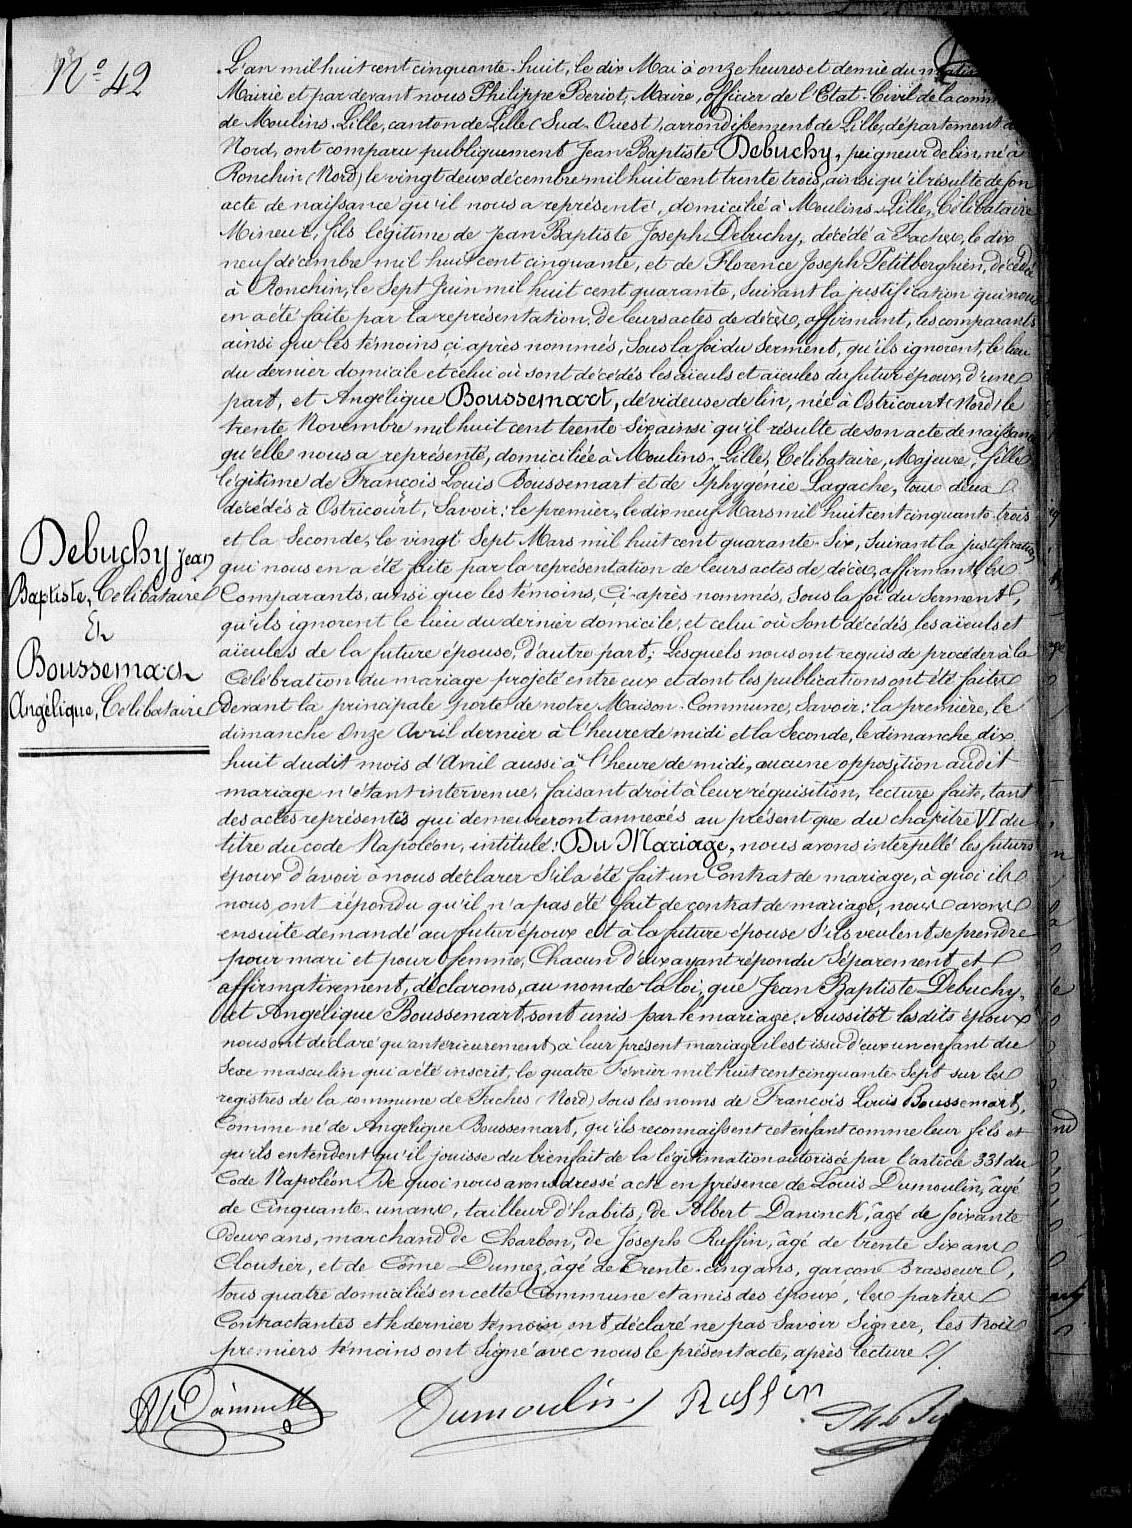 N° 42
L'an mil huit cent cinquante-huit, le dix Mai à onze heures et demie du matin
Mairie et par devant nous Philippe Beriot, Maire, officier de l'Etat-Civil de la comm
de Moulins-Lille, canton de Lille (Sud-Ouest), arrondissement de Lille, département d
Nord, ont comparu publiquement Jean Baptiste Debuchy, peigneur de lin, né à
Ronchin (Nord) le vingt deux décembre mil huit cent trente trois, ainsi qu'il résulte de son
acte de naissance qu'il nous a représenté, domicilié à Moulins-Lille, Célibataire
Mineur, fils légitime de Jean Baptiste Joseph Debuchy, décédé à Faches, le dix
neuf décembre mil huit cent cinquante, et de Florence Joseph Petitberghien, décédée
à Ronchin, le Sept Juin mil huit cent quarante, suivant la justification qui nous
en a été faite par la représentation de leurs actes de décès, affirmant, les comparants
ainsi que les témoins ci après nommés, sous la foi du Serment, qu'ils ignorent, le lieu
du dernier domicile et celui où sont décédés les aïeuls et aïeules du futur époux, d'une
part, et Angélique Boussemart, dévideuse de lin, née à Ostricourt (Nord) le
trente Novembre mil huit cent trente-six ainsi qu'il résulte de son acte de naissance
qu'elle nous a représenté, domiciliée à Moulins-Lille, Célibataire, Majeure, fille
légitime de François Louis Boussemart et de Iphygénie Lagache, tous deux
décédés à Ostricourt, Savoir: le premier, le dix neuf Mars mil huit cent cinquante-trois
et la Seconde, le vingt Sept Mars mil huit cent quarante-Six, Suivant la justification
qui nous en a été faite par la représentation de leurs actes de décès, affirmant les
Comparants, ainsi que les témoins, Ci-après nommés, sous la foi du Serment,
qu'ils ignorent le lieu du dernier domicile, et celui où sont décédés, les aïeuls et
aïeules de la future épouse, d'autre part; Lesquels nous ont requis de procéder à la
Célébration du mariage projeté entre eux et dont les publications ont été faites
devant la principale porte de notre Maison-Commune, Savoir: la première, le
dimanche Onze Avril dernier à l'heure de midi et la Seconde, le dimanche dix
huit dudit mois d'Avril aussi à l'heure de midi, aucune opposition audit
mariage n'étant intervenue, faisant droit à leur réquisition, lecture faite, tant
des actes représentés qui demeureront annexés au présent que du chapitre VI du
titre du code Napoléon, intitulé: Du Mariage, nous avons interpellé les futurs
époux d'avoir à nous déclarer S'il a été fait un Contrat de mariage, à quoi ils
nous ont répondu qu'il n'a pas été fait de contrat de mariage, nous avons
ensuite demandé au futur époux et à la future épouse S'ils veulent se prendre
pour mari et pour femme, Chacun d'eux ayant répondu Séparement et
affirmativement, déclarons, au nom de la loi, que Jean Baptiste Debuchy,
et Angélique Boussemart, sont unis par le mariage. Aussitôt lesdits époux
nous ont déclaré qu'antérieurement à leur présent mariage il est issu d'eux un enfant du
Sexe masculin qui a été inscrit, le quatre Février mil huit cent cinquante-Sept sur les
registres de la commune de Faches (Nord) sous les noms de François Louis Boussemart,
Comme né de Angélique Boussemart, qu'ils reconnaissent cet enfant comme leur fils et
qu'ils entendent qu'il jouisse du bienfait de la légitimation autorisée par l'article 331 du
Code Napoléon. De quoi nous avons dressé acte en présence de Louis Dumoulin, âgé
de Cinquante-un ans, tailleur d'habits, de Albert Daninck, âgé de soixante
deux ans, marchand de Charbon, de Joseph Ruffin, âgé de trente Six ans
Cloutier, et de Côme Dumez, âgé de Trente-cinq ans, garçon Brasseur,
tous quatre domiciliés en cette Commune et amis des époux, les parties
Contractantes et le dernier témoin ont déclaré ne pas Savoir Signer, les trois
premiers témoins ont Signé avec nous le présent acte, après lecture ./.
Debuchy Jean
Baptiste, Célibataire
Et
Boussemart
Angélique, Célibataire
Dumoulin Ruffin